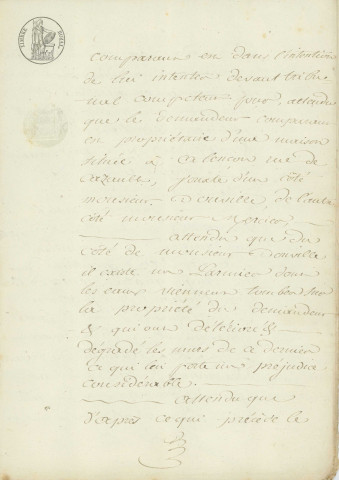 TIMBRE ROYAL
comparant en dans l'intention
de lui intenter devant le tribu
nal competent pour, attendu
que le demandeur comparant
est propriétaire d'une maison
située à rue de
joute d'un côté
monsieur de l'autre
côté monsieur
attendu que du
côté de monsieur
il existe un Larmier dont
les eaux viennent tomber sur
la propriété du demandeur
& qui ont deterioré &
dégradé les murs de ce dernier
ce qui lui porte un préjudice
considérable.
attendu que
d'après ce qui précède le